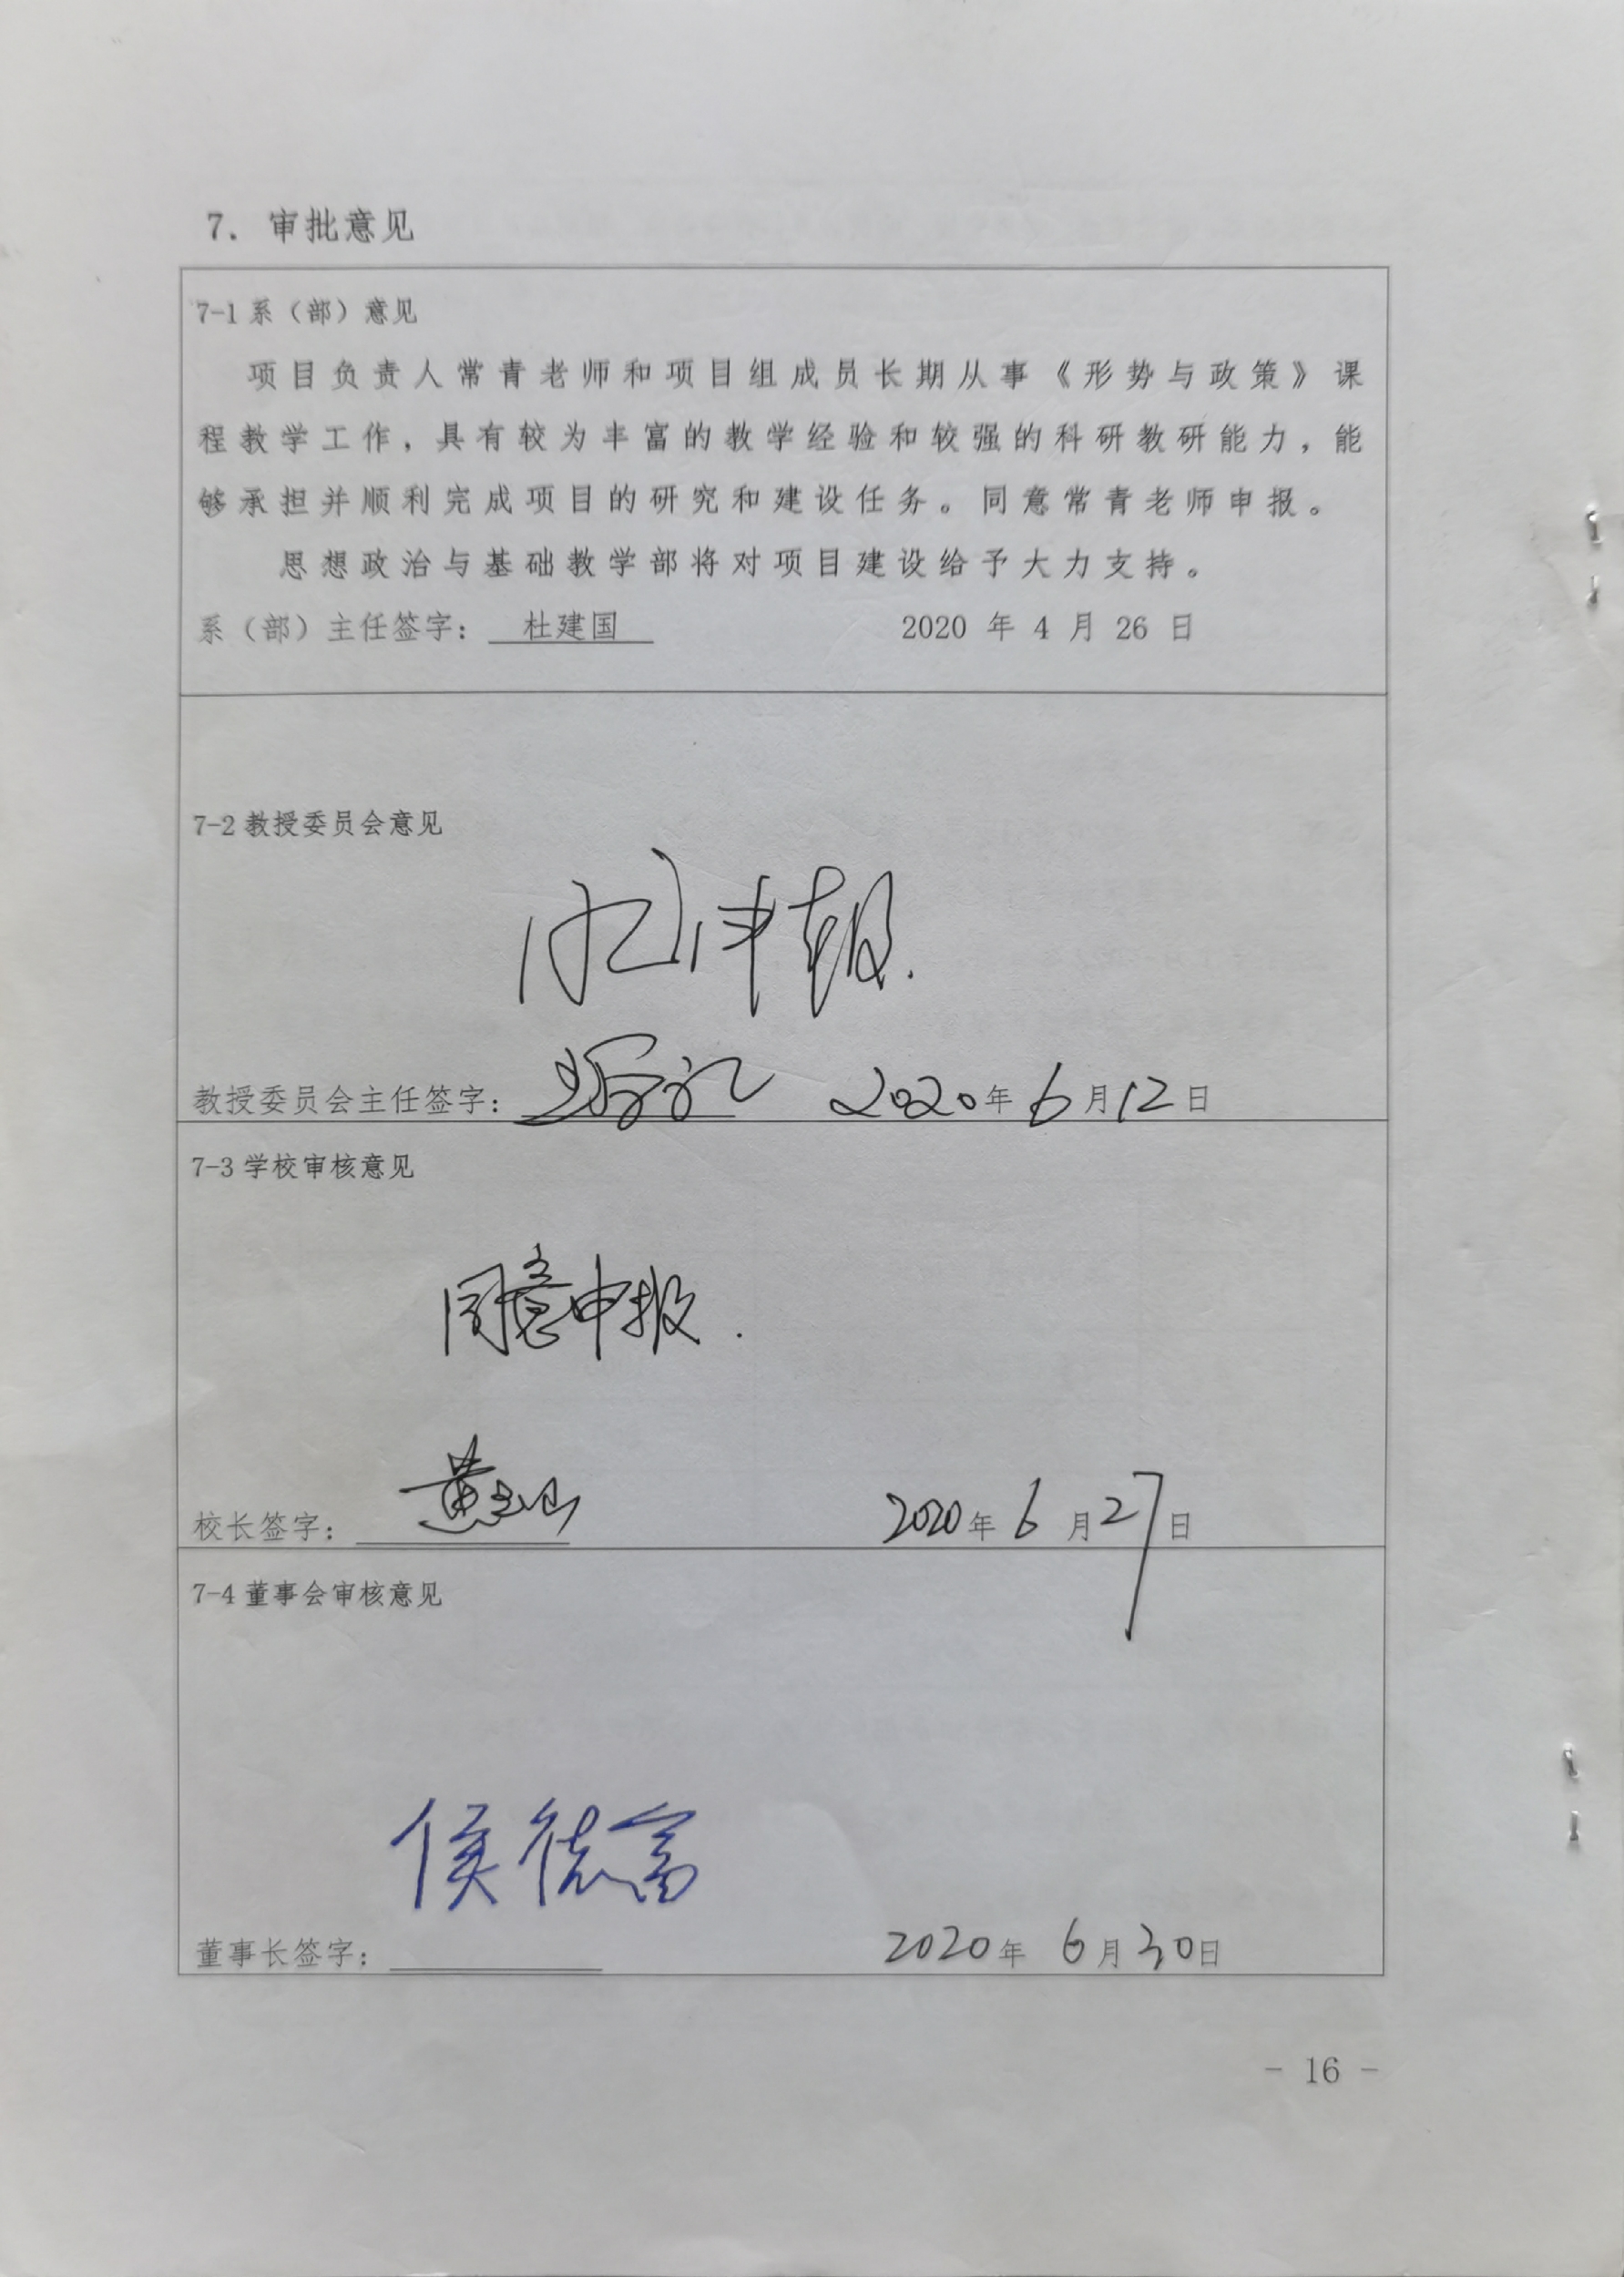 7. 审批意见
7-1系（部）意见
项目负责人常青老师和项目组成员长期从事《形势与政策》课
程教学工作，具有较为丰富的教学经验和较强的科研教研能力，能
够承担并顺利完成项目的研究和建设任务。同意常青老师申报。
思想政治与基础教学部将对项目建设给予大力支持。
系（部）主任签字：杜建国 2020 年 4 月 26 日
7-2教授委员会意见
同意申报.
教授委员会主任签字： 2020年6月12日
7-3学校审核意见
同意申报.
校长签字：黄 2020年6月27日
7-4董事会审核意见
侯德富
董事长签字： 2020年6月30日
- 16 -